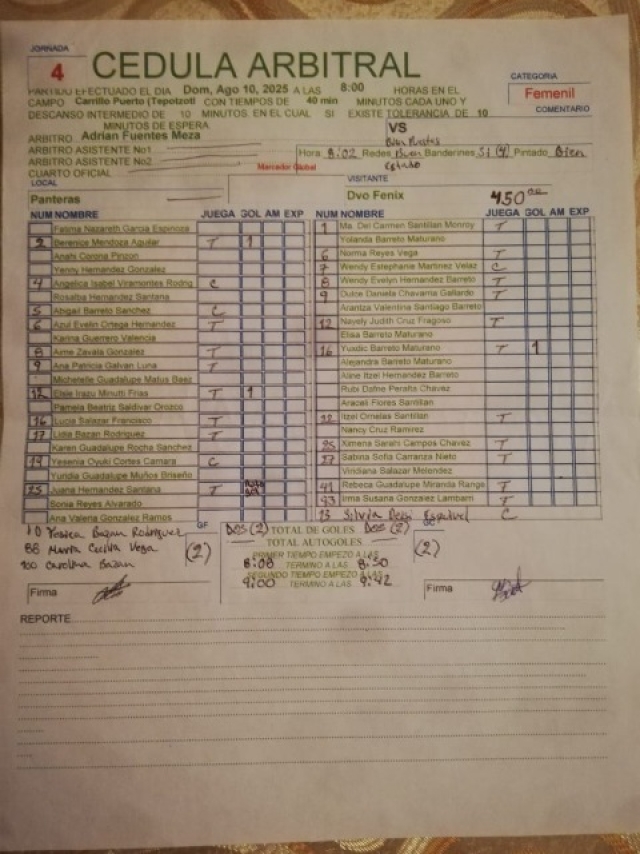 JORNADA
4
CEDULA ARBITRAL
CATEGORIA
Femenil
COMENTARIO
PARTIDO EFECTUADO EL DIA Dom, Ago 10, 2025 A LAS 8:00 HORAS EN EL
CAMPO Carrillo Puerto (Tepotzotl CON TIEMPOS DE 40 min MINUTOS CADA UNO Y
DESCANSO INTERMEDIO DE 10 MINUTOS. EN EL CUAL SI EXISTE TOLERANCIA DE 10
MINUTOS DE ESPERA
VS
ARBITRO Adrian Fuentes Meza
ARBITRO ASISTENTE No1
Hora 8:02 Redes Buen Banderines Si (4) Pintado Bien
ARBITRO ASISTENTE No2
estado
CUARTO OFICIAL
Marcador Global
LOCAL
VISITANTE
Panteras
Dvo Fenix
450
NUM NOMBRE JUEGA GOL AM EXP
Fatima Nazareth Garcia Espinoza
2 Berenice Mendoza Aguilar T 1
Anahi Corona Pinzon
Yenny Hernandez Gonzalez
4 Angelica Isabel Viramontes Rodrig C
Rosalba Hernandez Santana
5 Abigail Barreto Sanchez C
6 Azul Evelin Ortega Hernandez T
Karina Guerrero Valencia
8 Aime Zavala Gonzalez T
9 Ana Patricia Galvan Luna T
Michetelle Guadalupe Matus Baez
12 Elsie Irazu Minutti Frias T 1
Pamela Beatriz Saldivar Orozco
16 Lucia Salazar Francisco T
17 Lidia Bazan Rodriguez T
Karen Guadalupe Rocha Sanchez
19 Yesenia Oyuki Cortes Camara C
Yuridia Guadalupe Muños Briseño
25 Juana Hernandez Santana T
Sonia Reyes Alvarado
Ana Valeria Gonzalez Ramos
NUM NOMBRE JUEGA GOL AM EXP
1 Ma. Del Carmen Santillan Monroy T
Yolanda Barreto Maturano
6 Norma Reyes Vega T
7 Wendy Estephanie Martinez Velaz C
8 Wendy Evelyn Hernandez Barreto T
9 Dulce Daniela Chavarria Gallardo T
Arantza Valentina Santiago Barreto
12 Nayely Judith Cruz Fragoso T
Elisa Barreto Maturano
16 Yuxdic Barreto Maturano T 1
Alejandra Barreto Maturano
Aline Itzel Hernandez Barreto
Rubi Dafne Peralta Chavez
Araceli Flores Santillan
22 Itzel Ornelas Santillan T
Nancy Cruz Ramirez
25 Ximena Sarahi Campos Chavez T
27 Sabina Sofia Carranza Nieto T
Viridiana Salazar Melendez
41 Rebeca Guadalupe Miranda Range T
93 Irma Susana Gonzalez Lambarri T
13 Silvia C
10 Yesica Bazan Rodriguez
88 Maria Cecilia Vega
100 Carolina Bazan
GF
(2)
Dos (2) TOTAL DE GOLES Dos (2)
GC
(2)
TOTAL AUTOGOLES
PRIMER TIEMPO EMPEZO A LAS
8:08 TERMINO A LAS 8:50
SEGUNDO TIEMPO EMPEZO A LAS
9:00 TERMINO A LAS 9:42
Firma
Firma
REPORTE